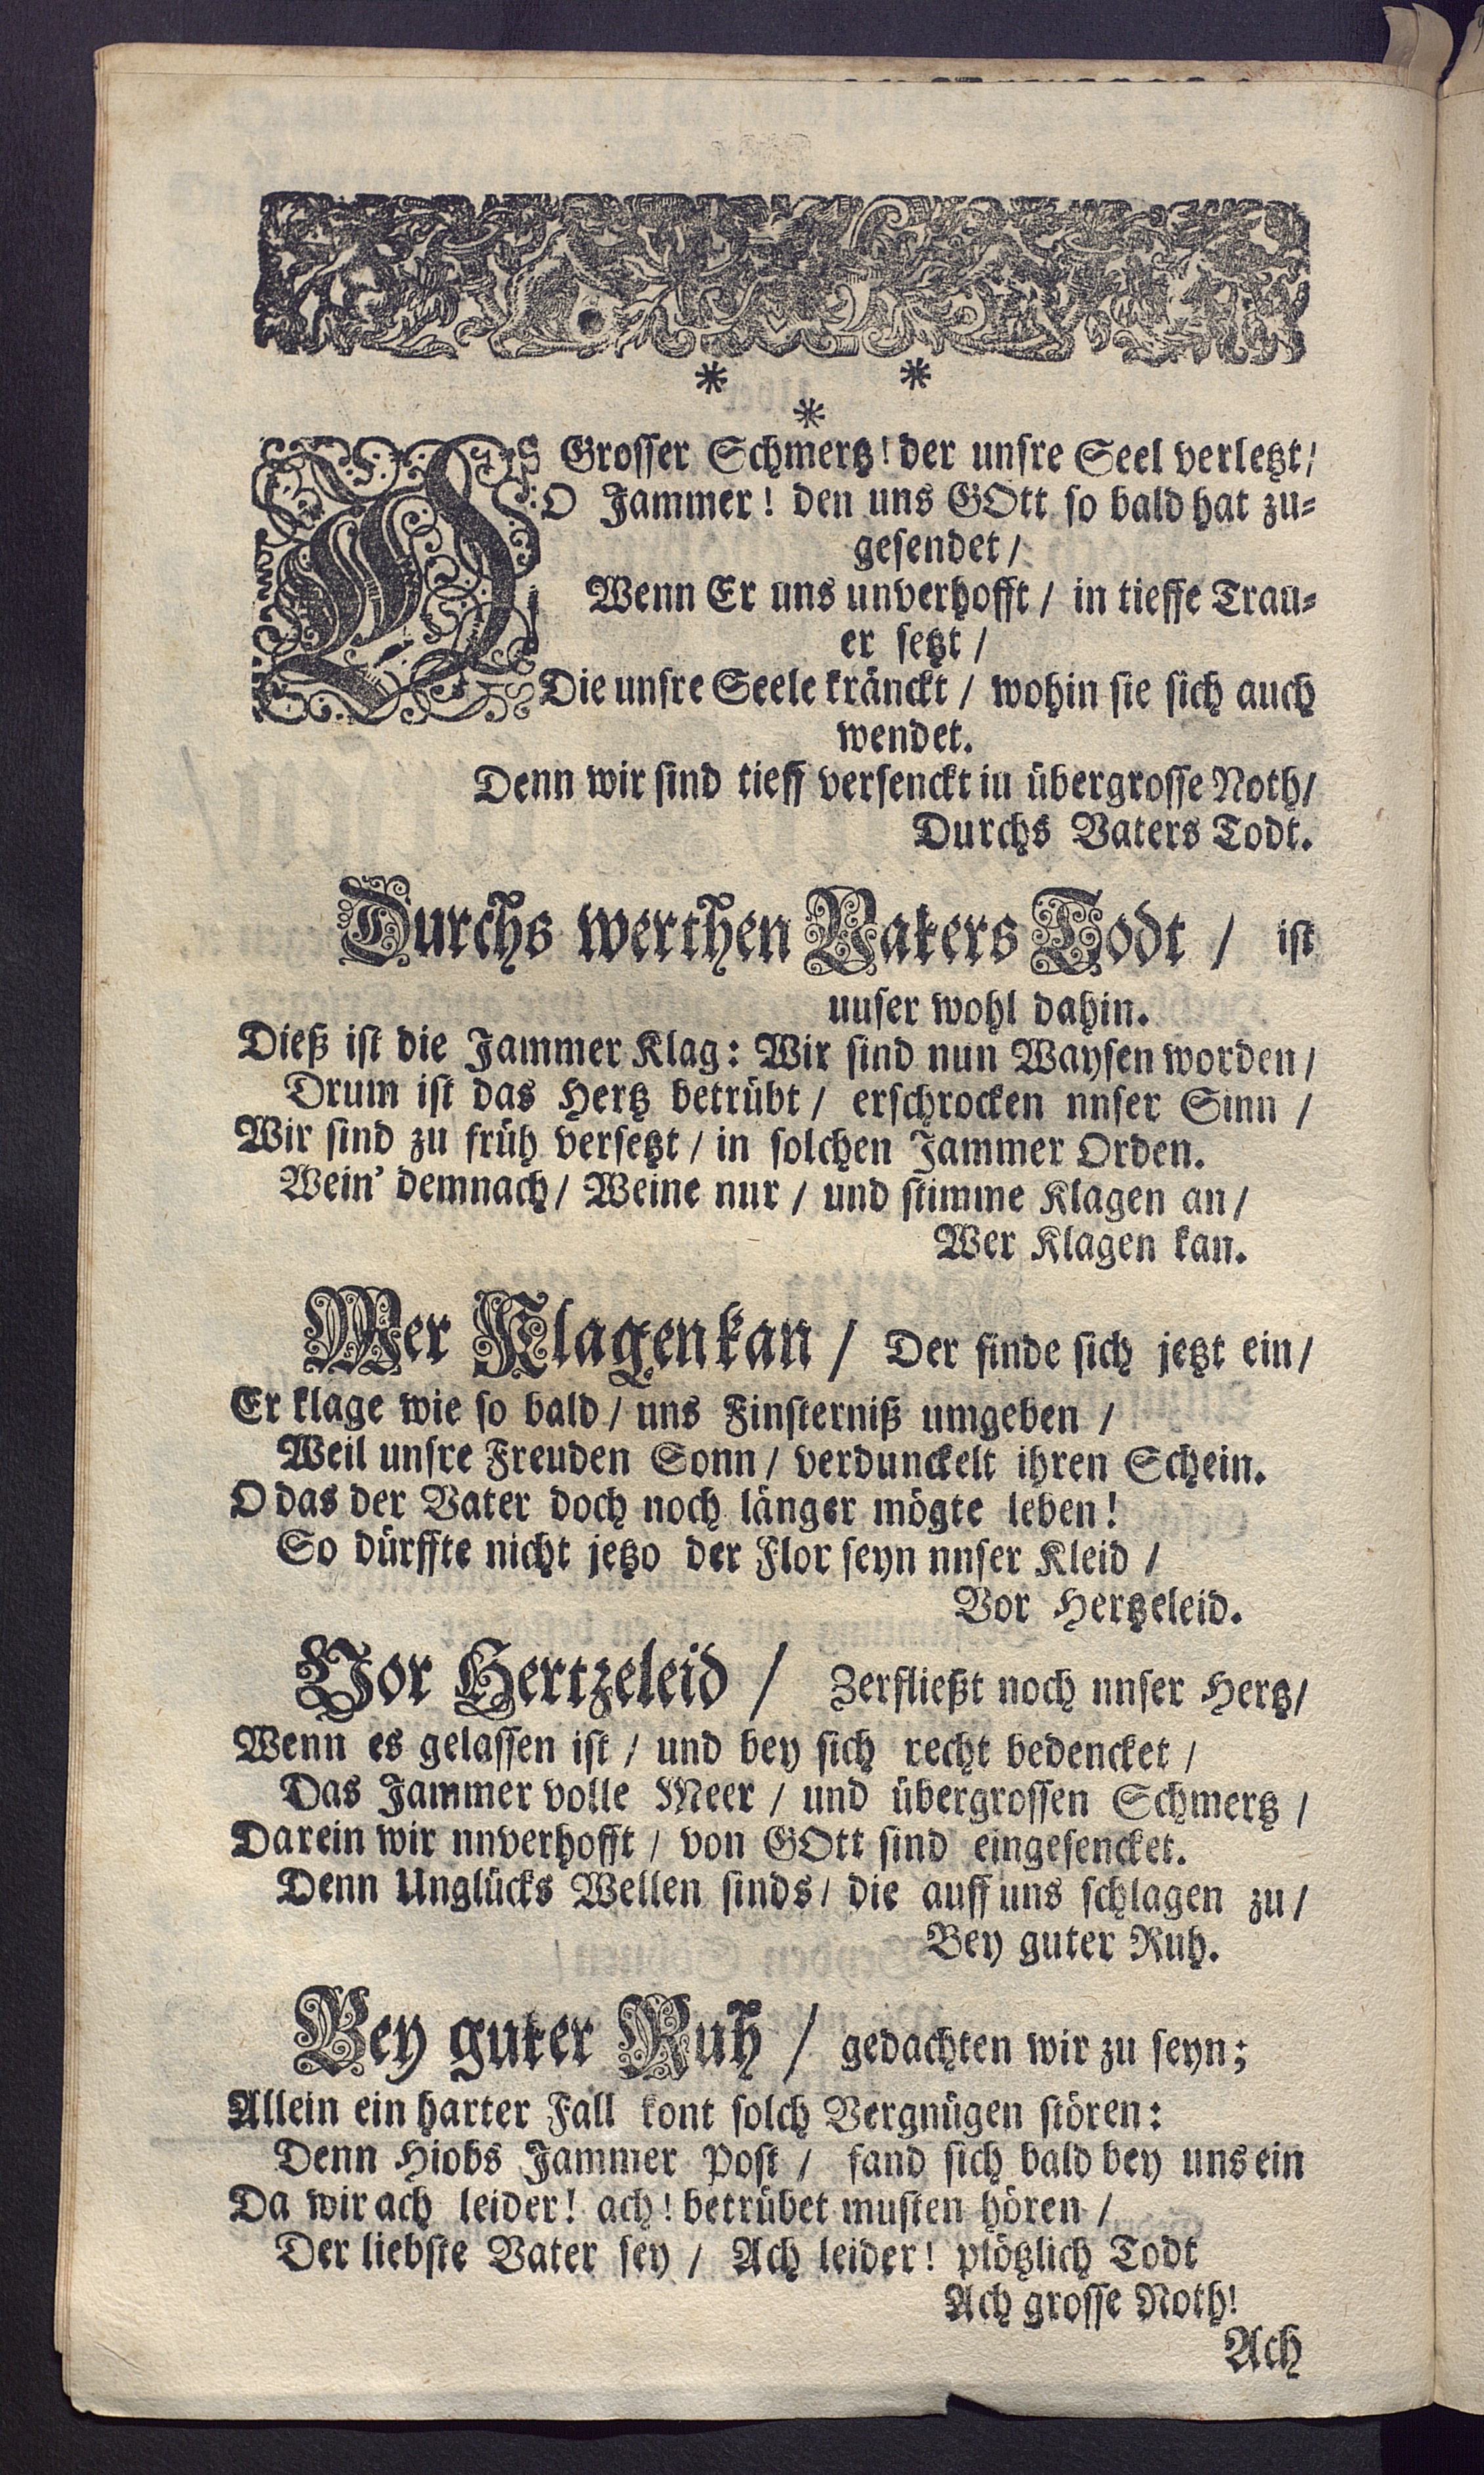 * *
*
O Grosser Schmertz! der unsre Seel verletzt/
O Jammer! den uns GOtt so bald hat zu-
gesendet/
Wenn Er uns unverhofft / in tieffe Trau-
er setzt /
Die unsre Seele kränckt / wohin sie sich auch
wendet.
Denn wir sind tieff versenckt in übergrosse Noth/
Durchs Vaters Todt.
Durchs werthen Vaters Todt / ist
unser wohl dahin.
Dieß ist die Jammer Klag: Wir sind nun Waysen worden/
Drum ist das Hertz betrübt / erschrocken nnser Sinn /
Wir sind zu früh versetzt / in solchen Jammer Orden.
Wein' demnach/ Weine nur / und stimme Klagen an/
Wer Klagen kan.
Wer Klagen kan / Der finde sich jetzt ein/
Er klage wie so bald / uns Finsterniß umgeben /
Weil unsre Freuden Sonn / verdunckelt ihren Schein.
O das der Vater doch noch länger mögte leben!
So dürffte nicht jetzo der Flor seyn nnser Kleid /
Vor Hertzeleid.
Vor Hertzeleid / Zerfließt noch nnser Hertz/
Wenn es gelassen ist / und bey sich recht bedencket /
Das Jammer volle Meer / und übergrossen Schmertz /
Darein wir nnverhofft / von GOtt sind eingesencket.
Denn Unglücks Wellen sinds / die auff uns schlagen zu/
Bey guter Ruh.
Bey guter Ruh / gedachten wir zu seyn;
Allein ein harter Fall kont solch Vergnügen stören:
Denn Hiobs Jammer Post / fand sich bald bey uns ein
Da wir ach leider! ach! betrübet musten hören /
Der liebste Vater sey / Ach leider! plötzlich Todt
Ach grosse Noth!
Ach